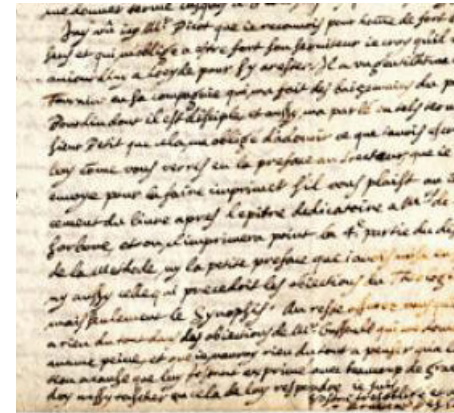 me donnent terme
Jay vû icy Mr Picot que ie reconnois pour home de fort
sens et qui m'oblige a estre fort son serviteur ie croy qu'il
auiourdhuy a Leyde pour s'y arester. Il a un gentilhome
Touraine en sa compagnie qui m'a fait des baisemains du p
Bourdin dont il est disciple et aussy m'a parlé en tels ter
sieur Petit que cela me oblige d'adoucir ce que i'avois escri
luy come vous verres en la preface au lecteur, que ie
envoye pour la faire imprimer s'il vous plaist au
cement du livre apres l'epitre dedicatoire a Mrs de
Sorbone, et on n'imprimera point la 4e partie du di
de la Methode, ny la petite preface que i'avois mise en
ny aussy celle qui precedoit les obiections du Theologi
mais seulement le Synopsis. Au reste
a rien du tout dans des obiections de Mr
aucune peine, et que ie pourray rien du tout a
beaucoup de
de luy respondre ie suis